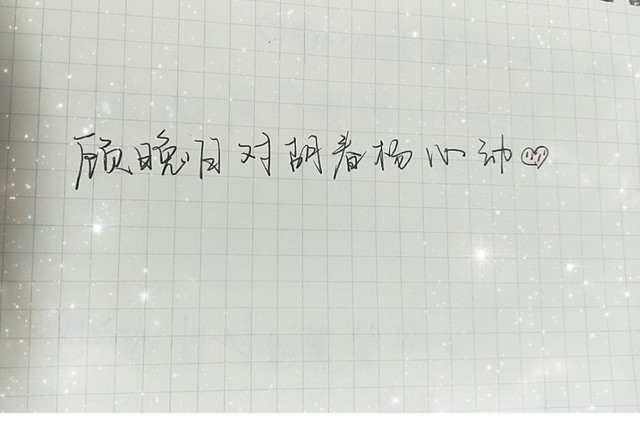 顾晚月对胡春杨心动